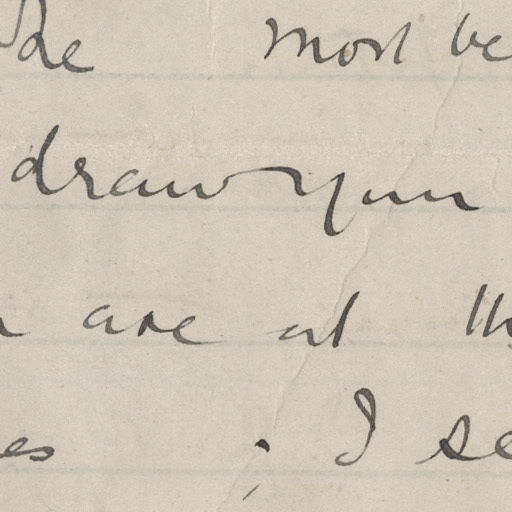 de most be
draw your
are at th
es ; I se